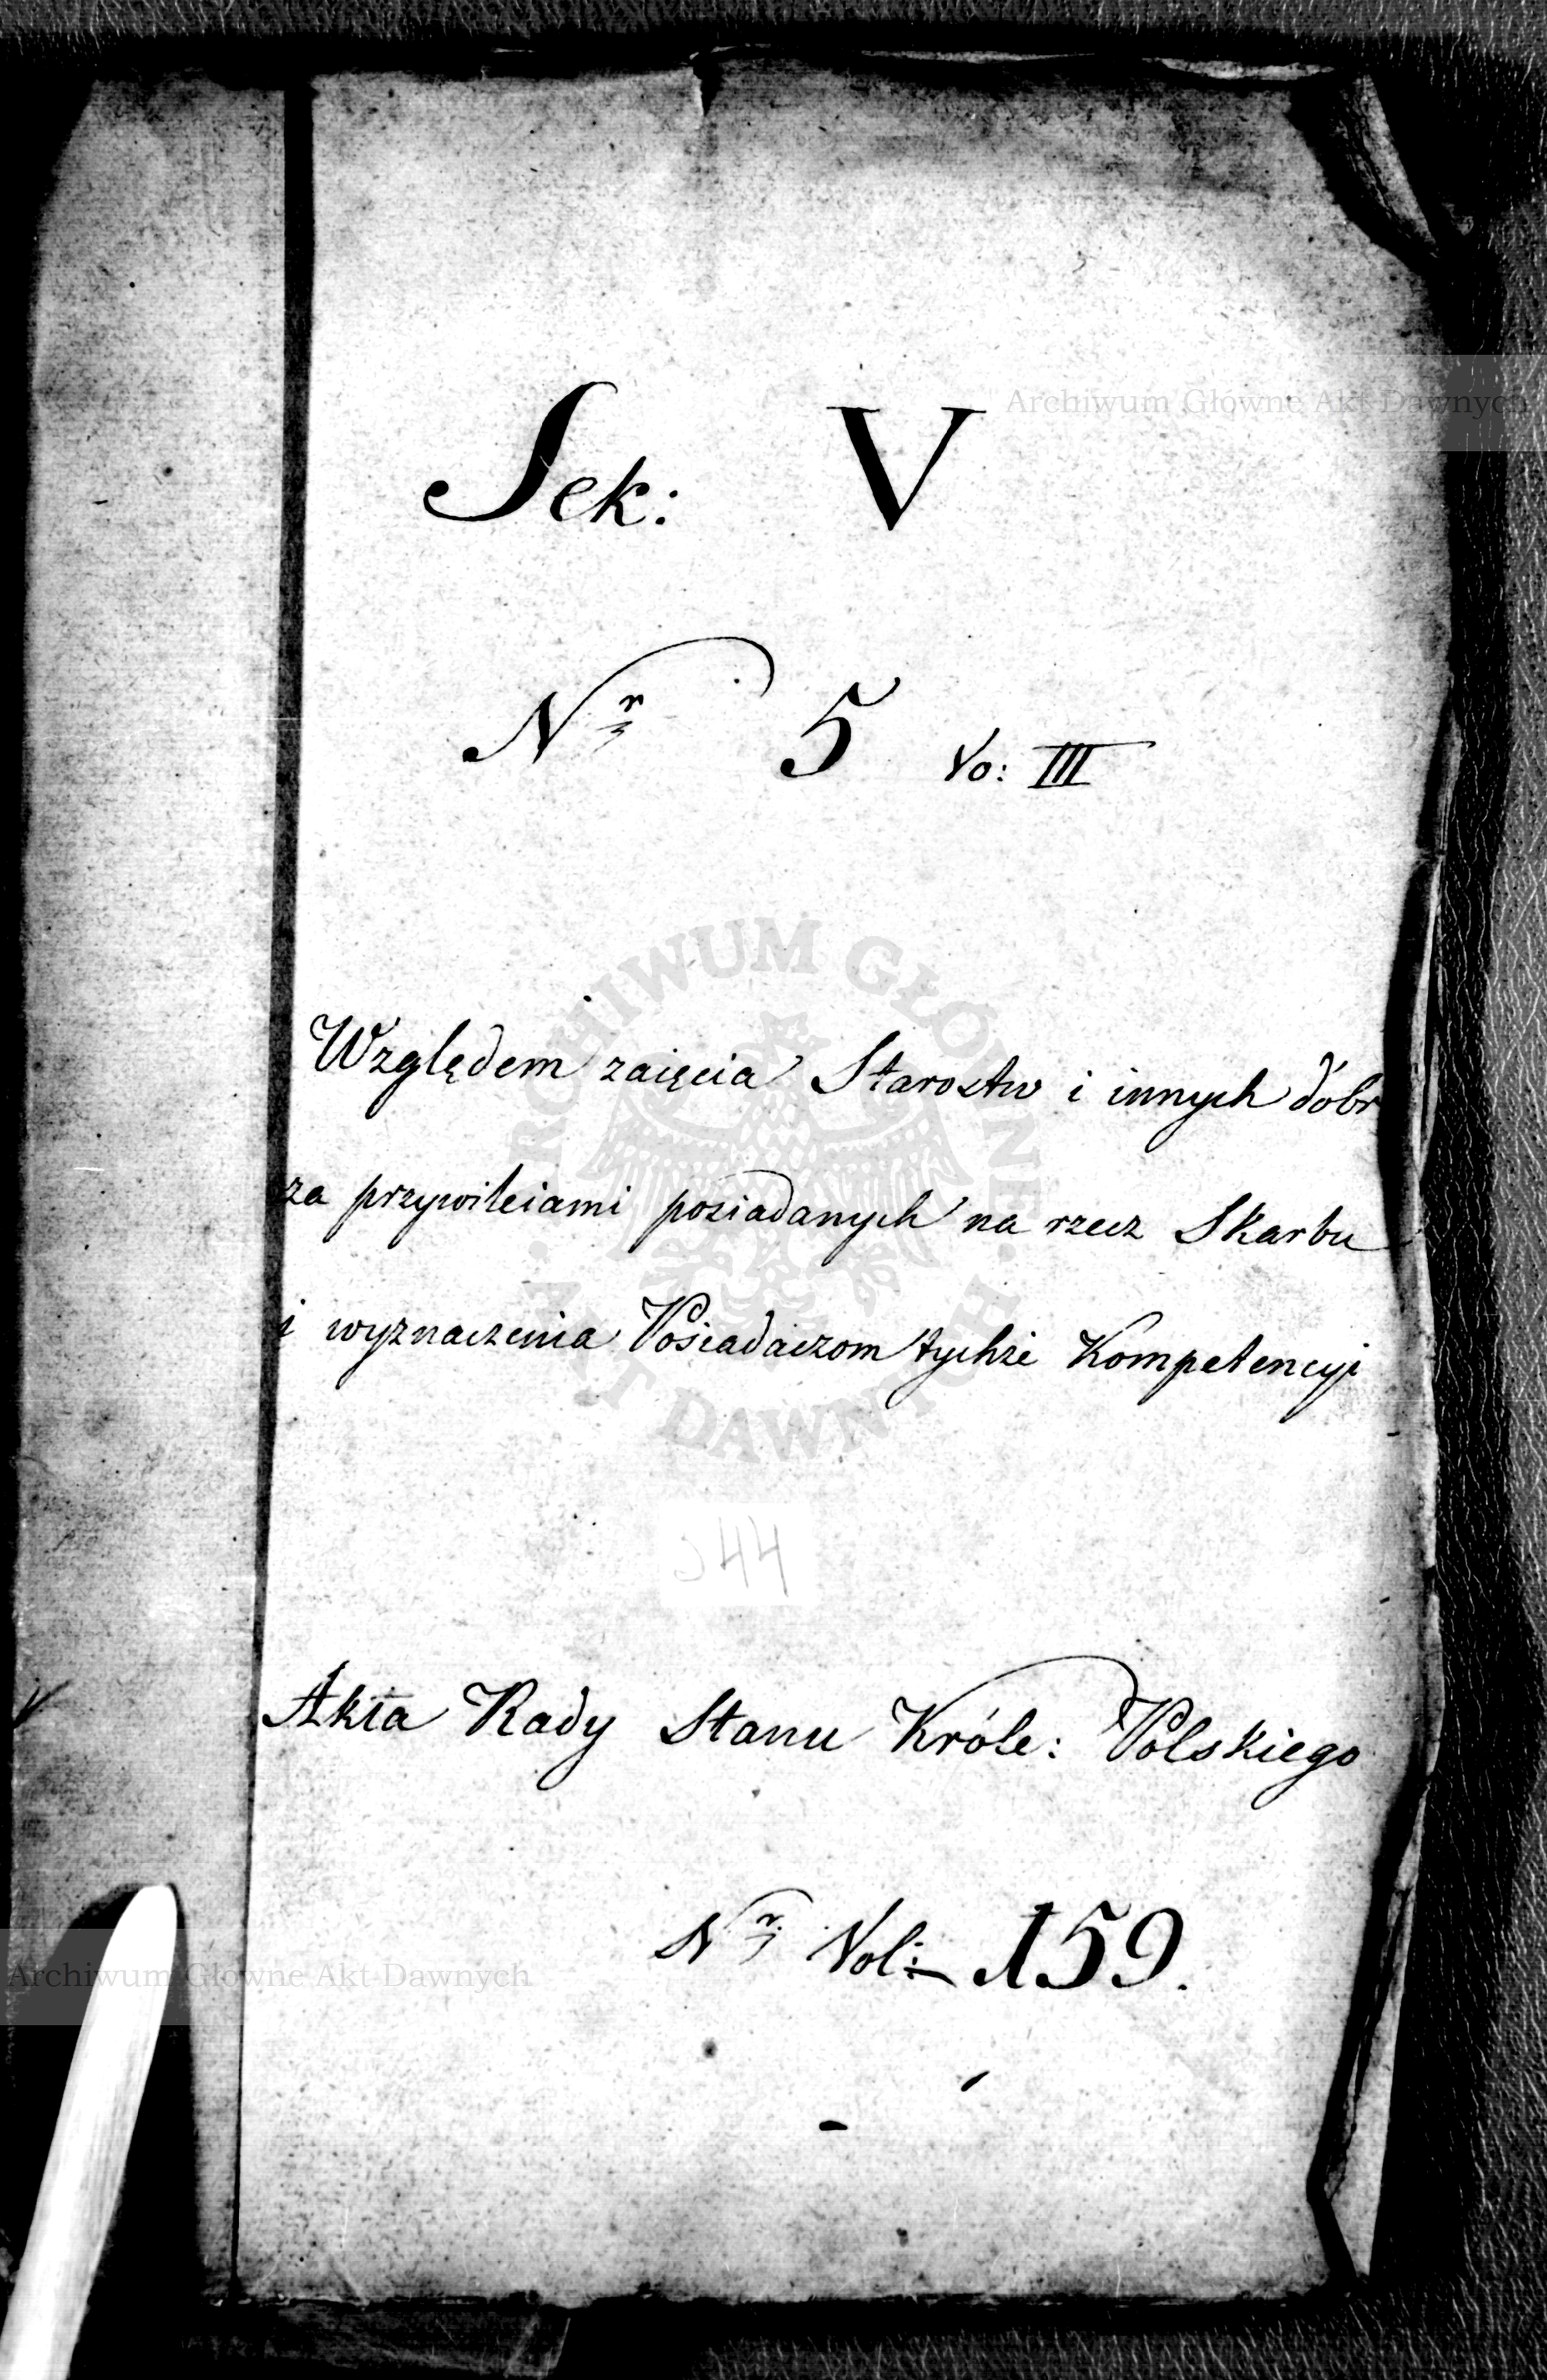 Sek: V
Nr 5 Vo: III
Względem zaięcia Starostw i innych dóbr
za przywileiami posiadanych na rzecz Skarbu
i wyznaczenia Posiadaczom tychże Kompetencyi
344
Akta Rady Stanu Króle: Polskiego
Nr Vol: 159.
Archiwum Główne Akt Dawnych
ARCHIWUM GŁÓWNE AKT DAWNYCH
Archiwum Główne Akt Dawnych